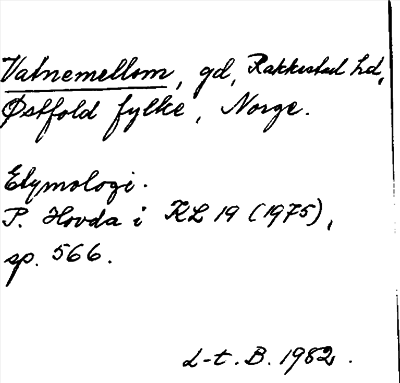 Vatnemellom, gd, Rakkestad hd,
Østfold fylke, Norge.
Etymologi.
P. Hovda i KL 19 (1975),
sp. 566.
L-t. B. 1982.